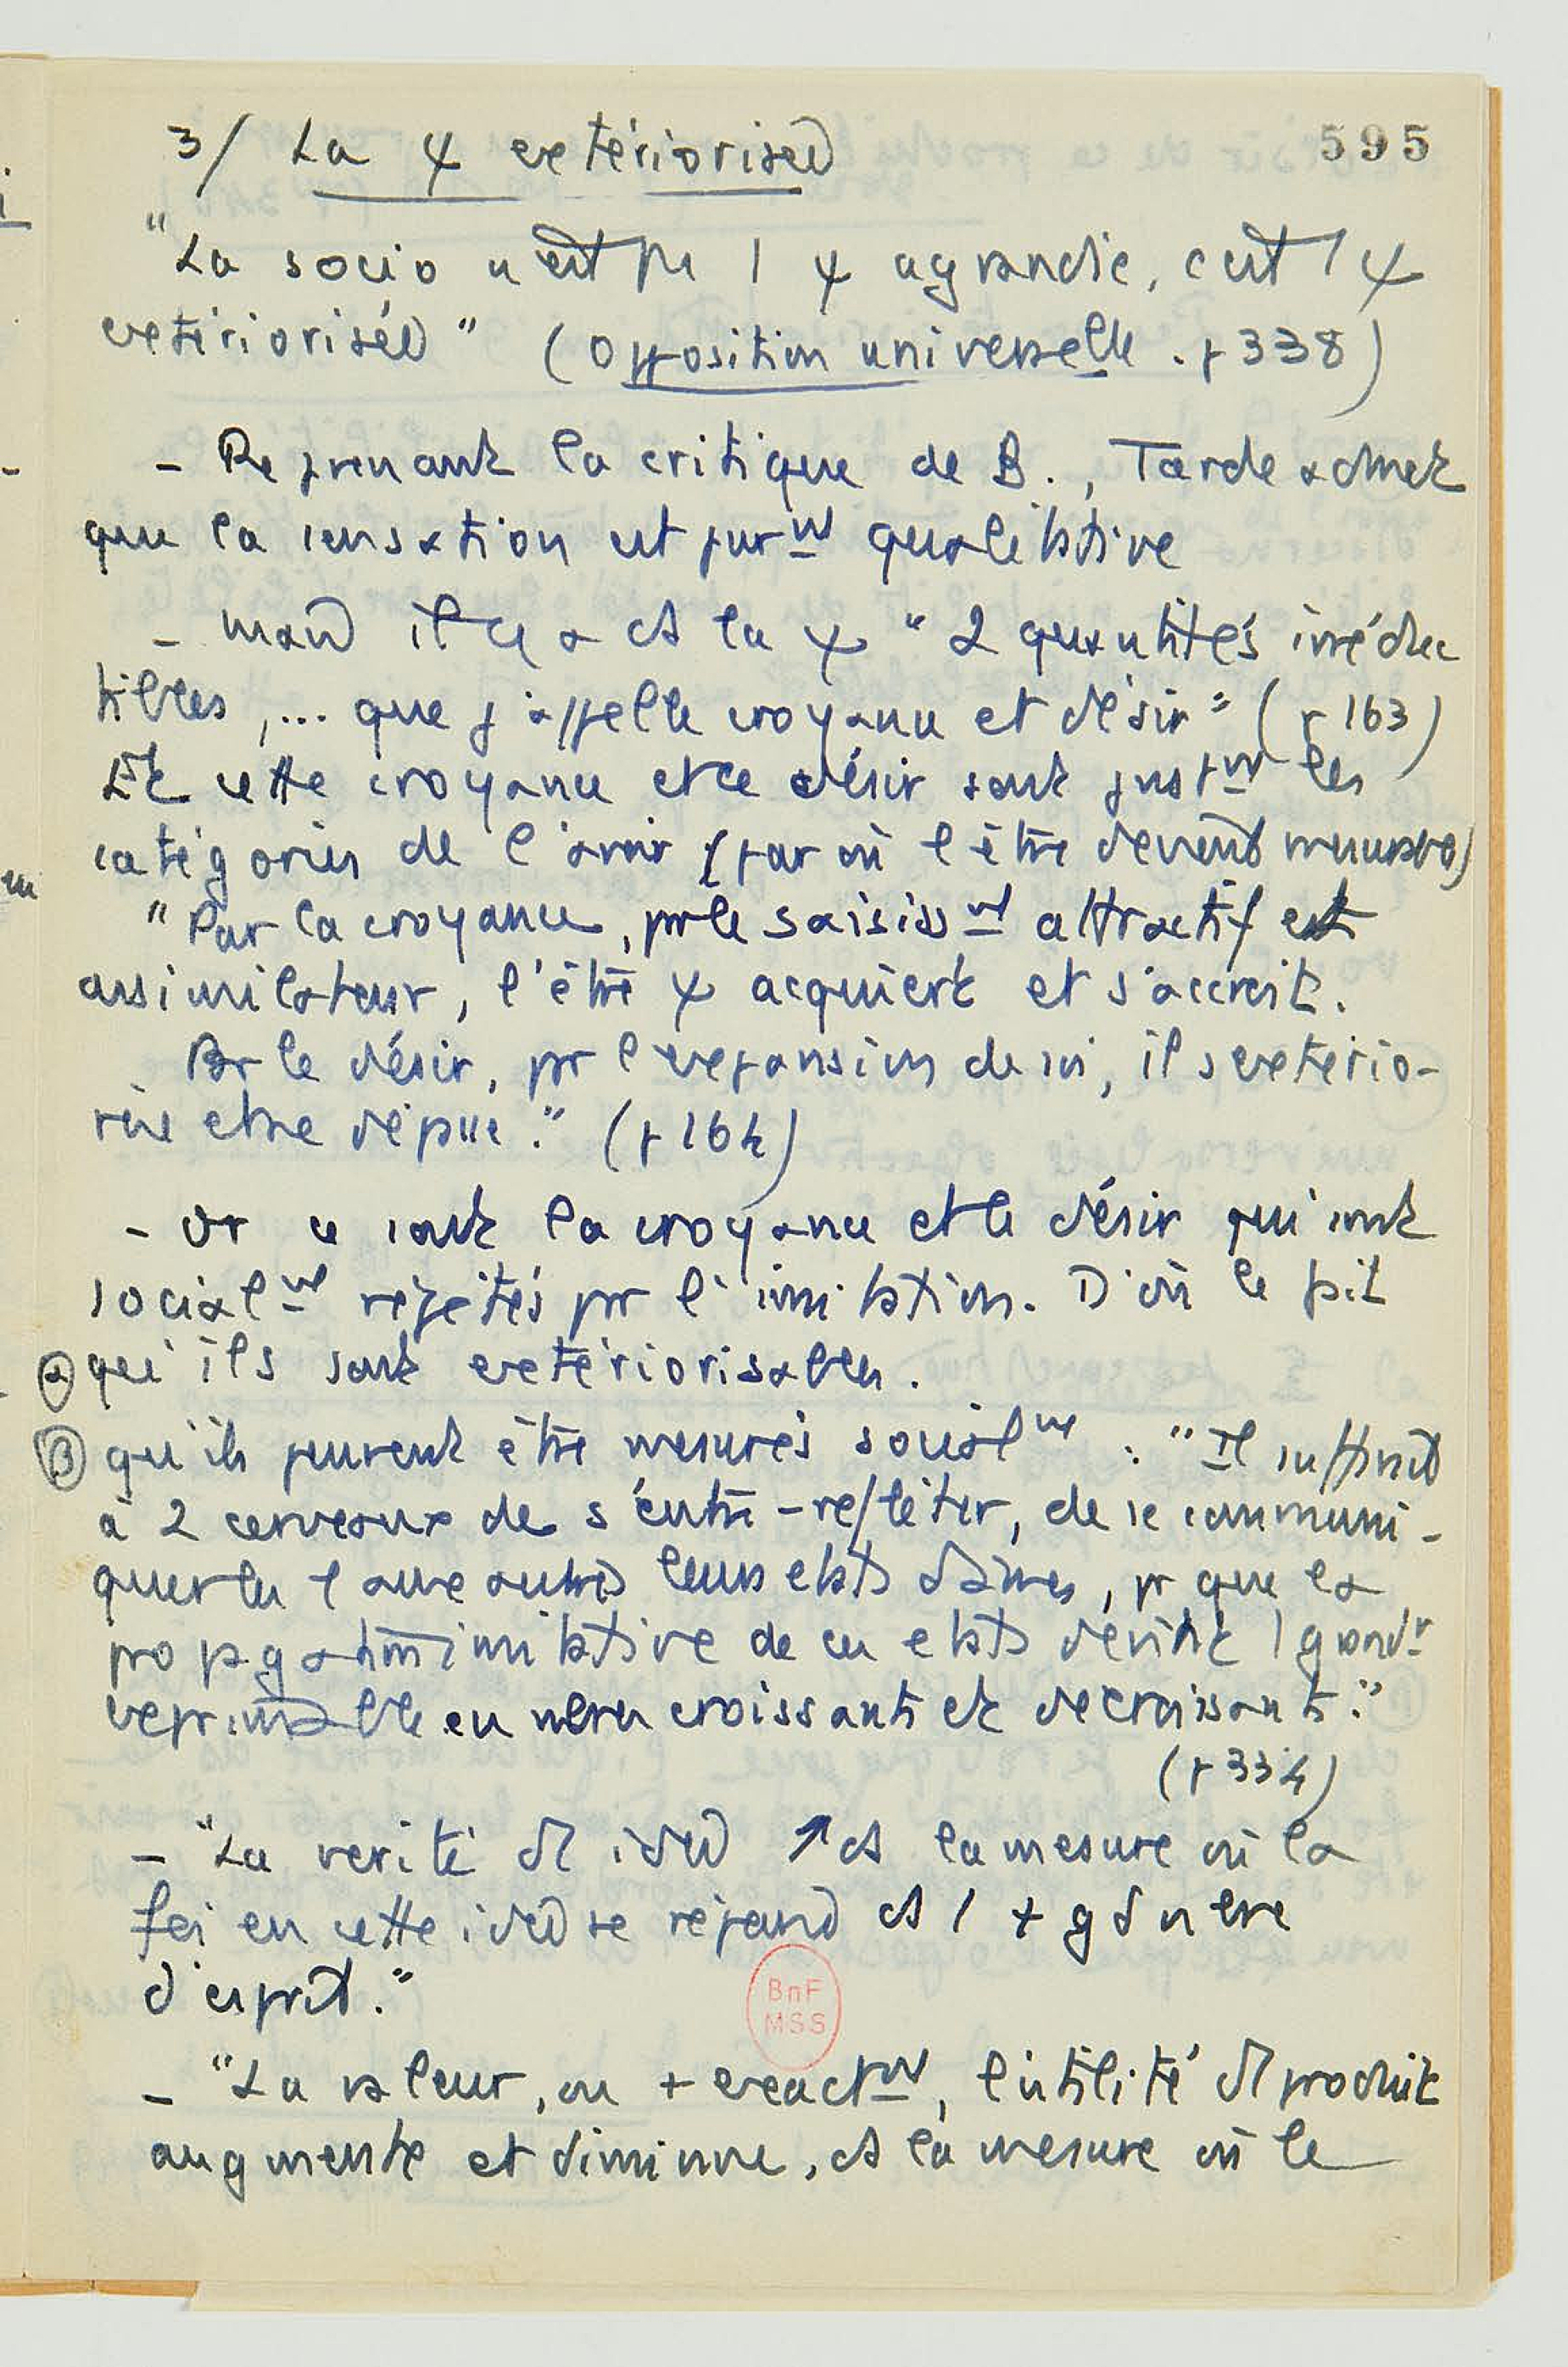 3/ La ψ extériorisée
595
"La socio n'est pas 1 ψ agrandie, c'est 1 ψ
extériorisée" (Opposition universelle. p 338)
- Reprenant la critique de B., Tarde admet
que la sensation est purmt qualitative
- mais il y a ds la ψ "2 quantités irréduc
tibles, ... que j'appelle croyance et désir" (p 163)
Et cette croyance et ce désir sont justmt les
catégories de l'avoir (par où l'être devient mesurable)
"Par la croyance, par le saisissmt attractif et
assimilateur, l'être ψ acquiert et s'accroit.
Par le désir, par l'expansion de soi, il s'extério-
rise et se dépense." (p 164)
- Or ce sont la croyance et le désir qui sont
socialmt répétés par l'imitation. D'où le fait
α qu'ils sont extériorisables.
β qu'ils peuvent être mesurés socialmt : "Il suffirait
à 2 cerveaux de s'entre-refléter, de se communi-
quer les 1 aux autres leurs états d'âmes, pr que la
propagation imitative de ces états devînt 1 grandr
exprimable en nbres croissants et décroissants."
(p 334)
- "La vérité d'1 idée ↗ ds la mesure où la
foi en cette idée se répand ds 1 + gd nbre
d'esprit."
BnF
MSS
- "La valeur, ou + exactmt, l'utilité d'1 produit
augmente et diminue, ds la mesure où le